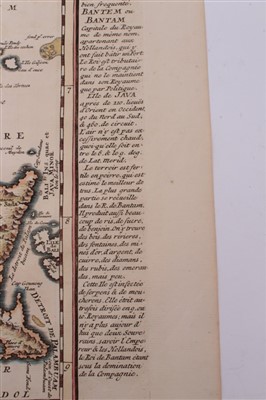 bien frequenté.
BANTEM ou
BANTAM
Capitale du Royau
me de même nom
apartenant aux
Hollandois, qui y
ont fait bâtir un Fort.
Le Roi est tributai
re de la Compagnie
qui ne le maintient
dans son Royaume
que par Politique.
L'Ile de JAVA
a pres de 220. lieuës
d'Orient en Occident,
40 du Nord au Sud,
& 460. de circuit.
L'air n'y est pas ex
cessivement chaud,
quoi qu'elle soit en
tre le 6. & le 9. deg.
de Lat. Merid.
Le terroir est fer
tile en poivre, qui est
estimé le meilleur de
tous. La plus grande
partie se recueille
dans le R. de Bantam.
Il produit aussi beau
coup de ris, de sucre,
de benjoin. On y trouve
des bois, des rivieres,
des fontaines, des mi
nes d'or, d'argent, de
cuivre, des diamans,
des rubis, des emerau
des, mais peu.
Cette Ile est infectée
de serpens & de mou
cherons. Elle étoit au
trefois divisée en
Royaumes; mais il
n'y a plus aujour d'
hui que deux Souve
rains, savoir l'Empe
reur & les Hollandois,
le Roi de Bantam étant
sous la domination
de la Compagnie.
M
RE
7
8
9
10
BALI
JAVA MINOR
DETROIT DE
DOL